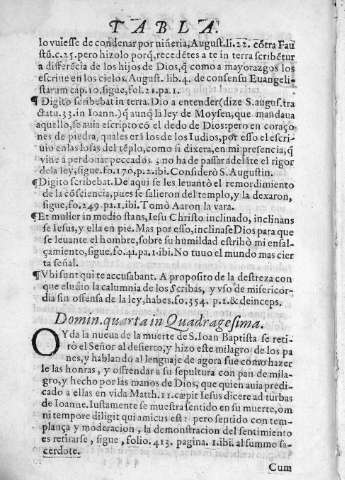 TABLA.
lo vuiesse de condenar por niñeria, August. li. 22. cõtra Fau
stũ. c. 25. pero hizolo porq̃, recedẽtes a te in terra scribẽtur
a differẽcia de los hijos de Dios, q̃ como a mayorazgos los
escriue en los cielos. August. lib. 4. de consensu Euangeli-
starum cap. 10. sigue, fol. 21. pa. 1.
¶ Digito scribebat in terra. Dio a entender (dize S. augus. tra
ctatu. 33. in Ioann.) q̃ aunq̃ la ley de Moysen, que mandaua
aquello, se auia escripto cõ el dedo de Dios: pero en coraço
nes de piedra, quales erã los de los Iudios, por esso el escri-
uio en las losas del tẽplo, como si dixera, en mi presencia, q̃
vine a perdonar peccados, no ha de passar adelãte el rigor
de la ley, sigue. fo. 170. p. 2. ibi. Considerò S. Augustin.
¶ Digito scribebat. De aqui se les leuantò el remordimiento
de la cõsciencia, pues se salieron del templo, y la dexaron,
sigue, fo. 249. pa. 1. ibi. Tomò Aaron la vara.
¶ Et mulier in medio stans, Iesu Christo inclinado, inclinans
se Iesus, y ella en pie. Mas por esso, inclinase Dios para que
se leuante el hombre, sobre su humildad estribò mi ensal-
çamiento, sigue. fo. 41. pa. 1. ibi. No tuuo el mundo mas cier
ta señal.
¶ Vbi sunt qui te accusabant. A proposito de la destreza con
que eludio la calumnia de los Scribas, y vso de misericor-
dia sin offensa de la ley, habes. fo. 354. p. 1. & deinceps.
Domin. quarta in Quadragesima.
OYda la nueua de la muerte de S. Ioan Baptista se reti-
rò el Señor al desierto, y hizo este milagro de los pa
nes, y hablando al lenguaje de agora fue como hazer
le las honras, y offrendar a su sepultura con pan de mila-
gro, y hecho por las manos de Dios, que quien auia predi-
cado a ellas en vida Matth. 11. cœpit Iesus dicere ad turbas
de Ioanne. Iustamente se muestra sentido en su muerte, om
ni tempore diligit qui amicus est: pero sentido con tem-
plança y moderacion, la demonstracion del sentimiento
es retirarse, sigue, folio. 413. pagina. 1. ibi. al summo sa-
cerdote.
Cum